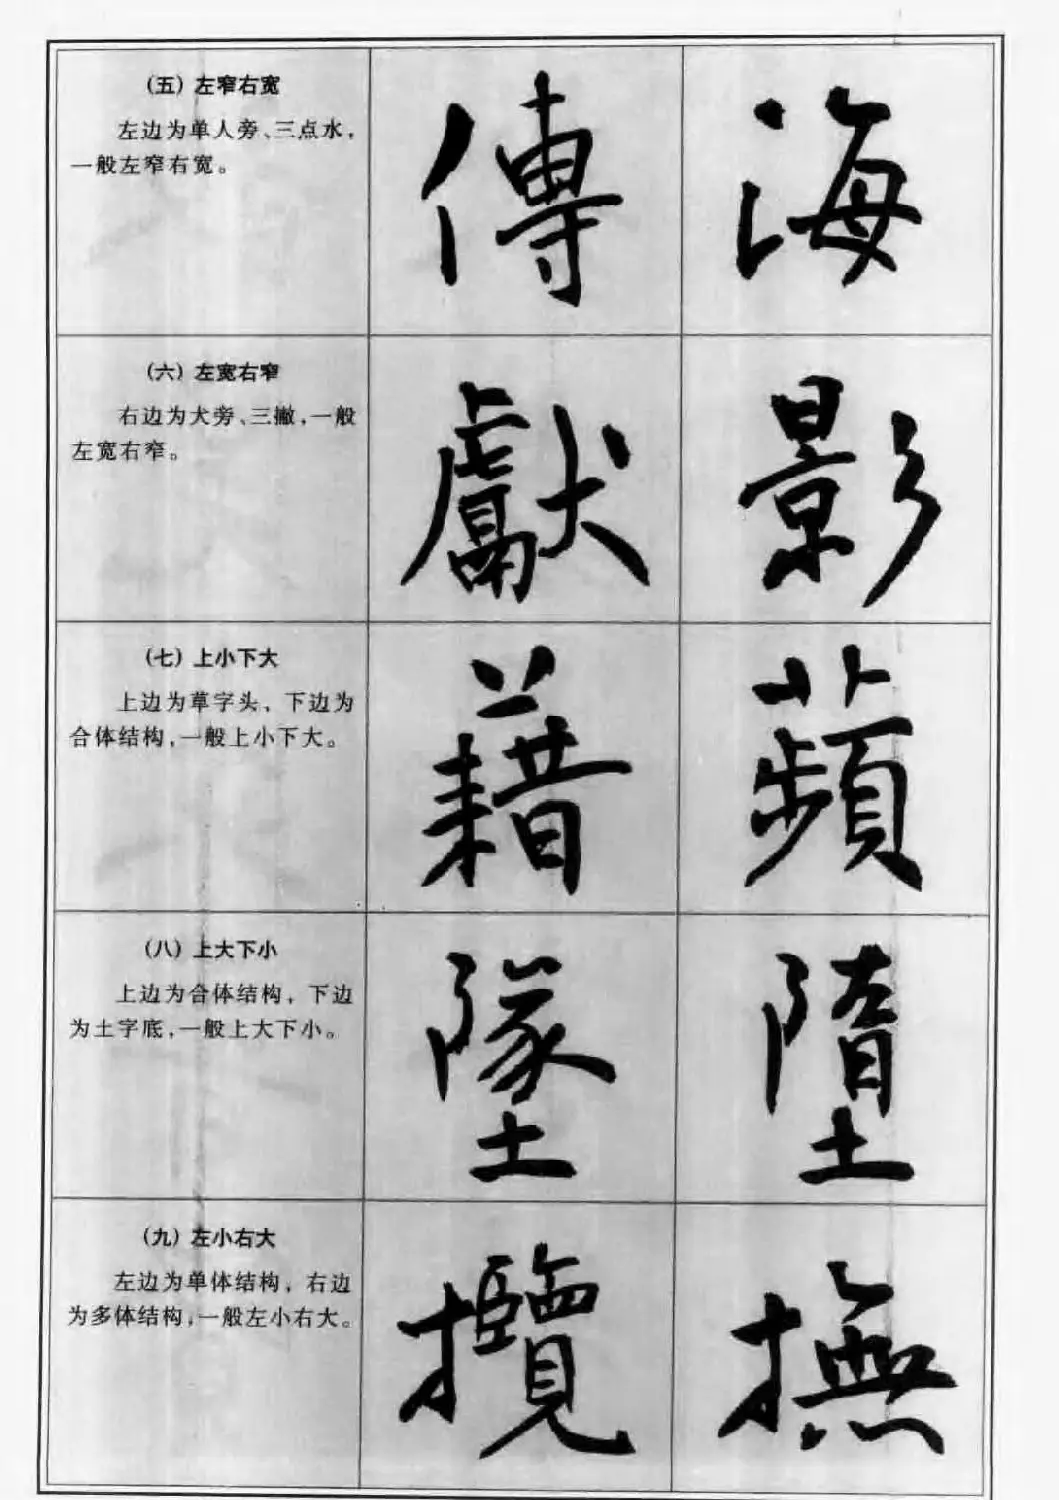 （五）左窄右宽
左边为单人旁、三点水，
一般左窄右宽。
傳
海
（六）左宽右窄
右边为犬旁、三撇，一般
左宽右窄。
獻
影
（七）上小下大
上边为草字头，下边为
合体结构，一般上小下大。
藉
蘋
（八）上大下小
上边为合体结构，下边
为土字底，一般上大下小。
墜
墮
（九）左小右大
左边为单体结构，右边
为多体结构，一般左小右大。
攬
撫